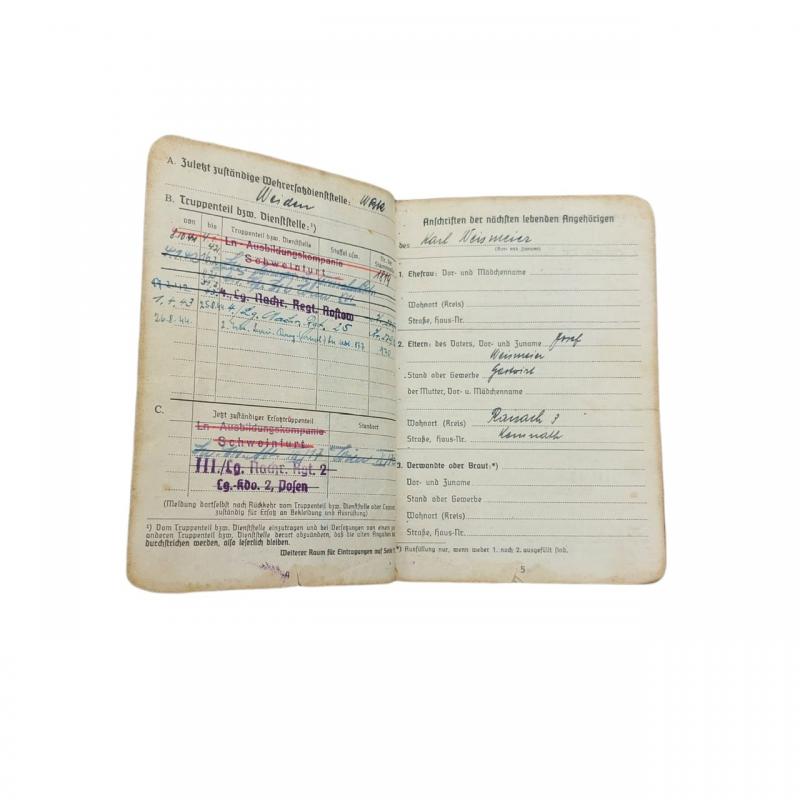 A. Zuletzt zuständige Wehrersatzdienststelle: WBK
Weiden
B. Truppenteil bzw. Dienststelle:¹)
von bis Truppenteil bzw. Dienststelle Staffel usw.
Ln-Ausbildungskompanie
Schweinfurt
4. Lg. Nachr. Regt. Rostow
1.4.43 25.8.44 4. Lg. Nachr. Rgt. 25
26.8.44
C.
Jetzt zuständiger Ersatztruppenteil Standort
Ln-Ausbildungskompanie
Schweinfurt
III./Lg. Nachr. Rgt. 2
Lg.-Kdo. 2, Posen
(Meldung dortselbst nach Rückkehr vom Truppenteil bzw. Dienststelle oder
zuständig für Ersatz an Bekleidung und Ausrüstung)
¹) Vom Truppenteil bzw. Dienststelle einzutragen und bei Versetzungen von einem zu
anderen Truppenteil bzw. Dienststelle derart abzuändern, daß die alten Angaben
durchstrichen werden, also leserlich bleiben.
Weiterer Raum für Eintragungen auf Seite
Anschriften der nächsten lebenden Angehörigen
des Karl Weismeier
(Vor- und Zuname)
1. Ehefrau: Vor- und Mädchenname
Wohnort (Kreis)
Straße, Haus-Nr.
2. Eltern: des Vaters, Vor- und Zuname Josef
Weismeier
Stand oder Gewerbe Gastwirt
der Mutter, Vor- u. Mädchenname
Wohnort (Kreis)
Straße, Haus-Nr. Kemnath
3. Verwandte oder Braut:*)
Vor- und Zuname
Stand oder Gewerbe
Wohnort (Kreis)
Straße, Haus-Nr.
*) Ausfüllung nur, wenn weder 1. noch 2. ausgefüllt sind.
5